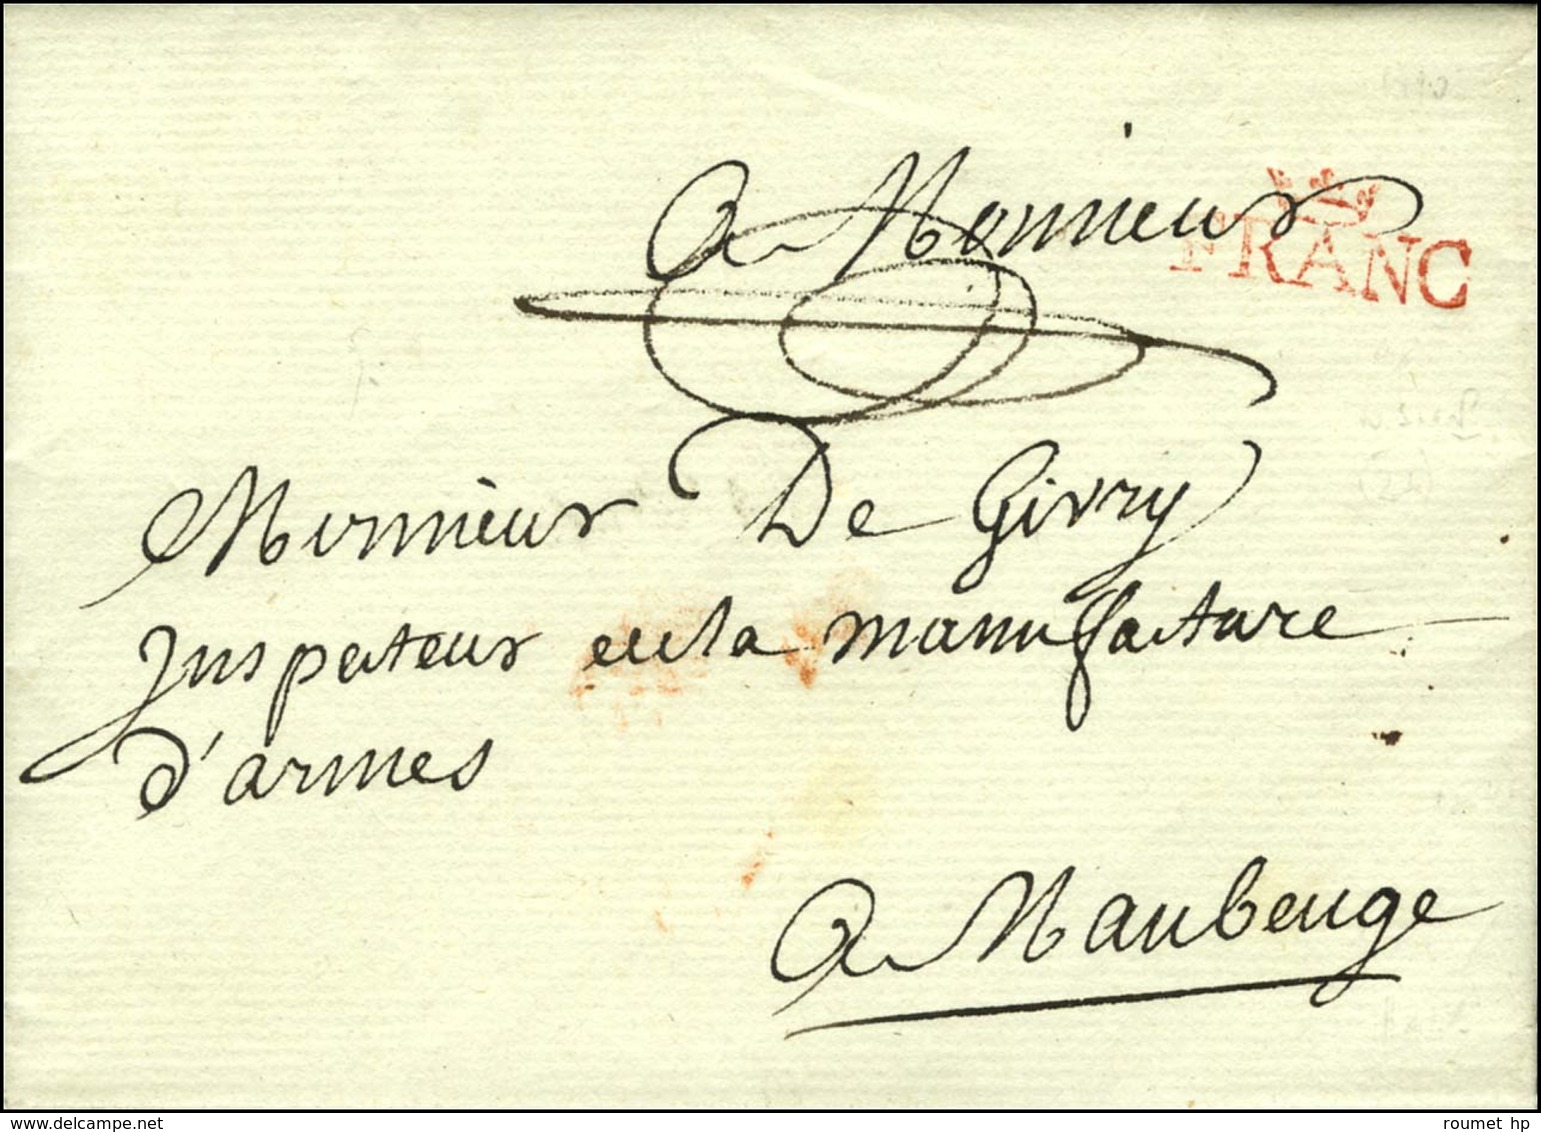 A Monsieur
FRANC
Monsieur De Givry
Inspecteur de la manufacture
d'armes
A Maubeuge
delcampe.net
roumet hp